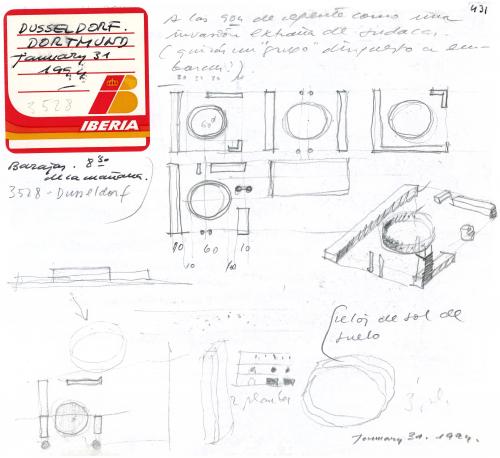 431
DUSSELDORF.
DORTMUND
January 31
1994
3528
IBERIA
A las 904 de repente como una
invasión extraña de sudacas.
Barajas. 8 30
de la mañana.
3528 - Dusseldorf
60
10 60 10
10
reloj de sol de
suelo
2 plantas
January 31. 1994.